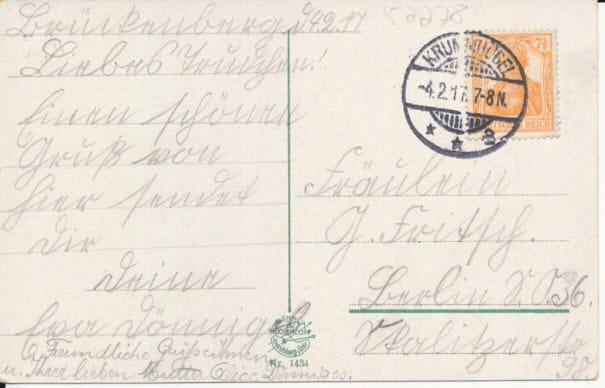 Brückenberg d 4.2.17
Liebes Trudchen!
Einen schönen
Gruß von
hier sendet
dir
deine
Eva Dönniges
Freundliche Grüße Ihnen
u. Ihrer lieben Mutter Dönniges.
52278
KRUMMHÜBEL
-4.2.17. 7-8 N.
* * a
7½
DEUTSCHES REICH
Fräulein
G. Fritsch.
Berlin S.O. 36.
Skalitzerstr
98.
Nr. 1434